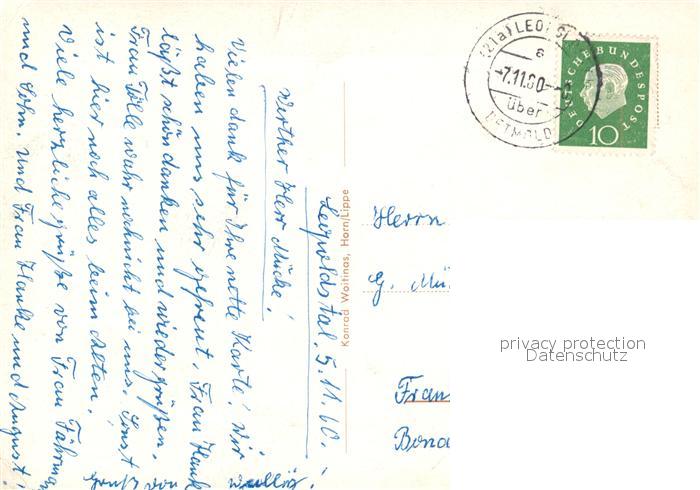 Leopoldstal. 5.11.60.
Werther Herr Mücke!
Vielen dank für Ihre nette Karte! Wir
haben uns sehr gefreut, Frau Hank
läßt schön danken und wiedergrüßen.
Frau Tölle wahr noch nicht bei uns. Sonst
ist hier noch alles beim Alten.
Viele herzliche grüße von Frau
und Sohn. und Frau Hanke und August!
gruß von
Konrad Woitinas, Horn/Lippe
(21a) LEOPOLDSTAL
a
-7.11.60-
über
DETMOLD
DEUTSCHE BUNDESPOST
10
Herrn
G. Mü
Fran
Bona
privacy protection
Datenschutz